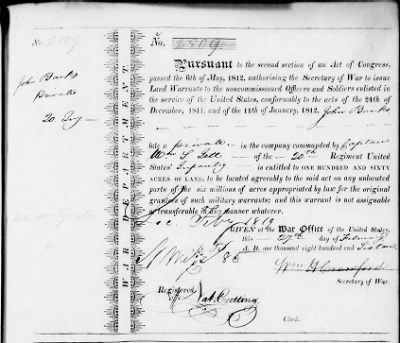 No. 2809
No. 2809
PURSUANT to the second section of an Act of Congress,
passed the 6th of May, 1812, authorising the Secretary of War to issue
Land Warrants to the noncommissioned Officers and Soldiers enlisted in
the service of the United States, conformably to the acts of the 24th of
December, 1811, and of the 11th of January, 1812, John Banks
John Banks
20 Inf
WAR DEPARTMENT
late a private in the company commanded by Captain
Wm S. of the 20th Regiment United
States' Infantry is entitled to ONE HUNDRED AND SIXTY
ACRES OF LAND, to be located agreeably to the said act on any unlocated
parts of the six millions of acres appropriated by law for the original
grantees of such military warrants; and this warrant is not assignable
or transferable in any manner whatever.
GIVEN at the War Office of the United States,
this 27th day of
A. D. one thousand eight hundred and
Wm H Crawford
Secretary of War.
Registered
Nat. Cutting
Clerk.